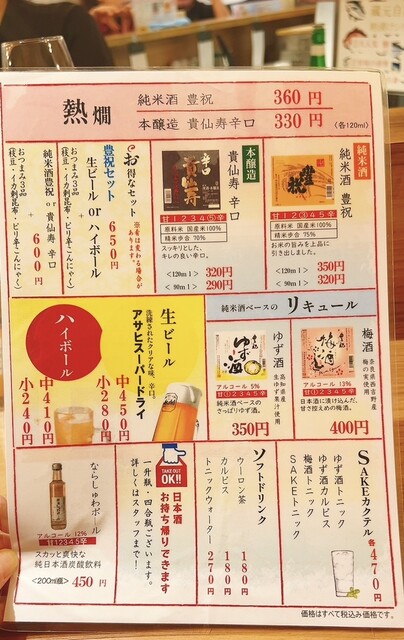 熱燗
純米酒 豊祝 360円
本醸造 貴仙寿辛口 330円
(各120ml)
純米酒
純米酒 豊祝
豊祝
甘1②345辛
原料米 国産米100%
精米歩合 75%
お米の旨みを上品に
引き出しました。
<120ml> 350円
<90ml> 320円
本醸造
貴仙寿 辛口
甘1234⑤辛
原料米 国産米100%
精米歩合 70%
スッキリとした、
キレの良い辛口。
<120ml> 320円
<90ml> 290円
お得なセット
※産は変わる場合が
あります
豊祝セット
650円
生ビール or ハイボール
+
おつまみ3品
(枝豆・イカ刺昆布・ピリ辛こんにゃく)
600円
純米酒豊祝 or 貴仙寿 辛口
+
おつまみ3品
(枝豆・イカ刺昆布・ピリ辛こんにゃく)
純米酒ベースの リキュール
梅酒
奈良県西吉野産
梅の実使用
アルコール 10%
日本酒に漬け込んだ、
甘さ控えめの梅酒。
400円
ゆず酒
高知県産
生ゆず果汁使用
ゆず酒
アルコール 5%
純米酒ベースの
さっぱりゆず酒。
350円
生ビール
洗練されたクリアな味、辛口。
アサヒスーパードライ
中450円
小280円
ハイボール
中410円
小240円
SAKEカクテル
各470円
ゆず酒トニック
ゆず酒カルピス
梅酒トニック
SAKEトニック
ソフトドリンク
ウーロン茶 180円
カルピス 180円
トニックウォーター 270円
TAKE OUT
OK!!
日本酒
お持ち帰りできます
一升瓶・四合瓶ございます。
詳しくはスタッフまで!
ならしゅわボール
アルコール 12%
スカッと爽快な
純日本酒炭酸飲料
<200ml瓶> 450円
価格はすべて税込み価格です。